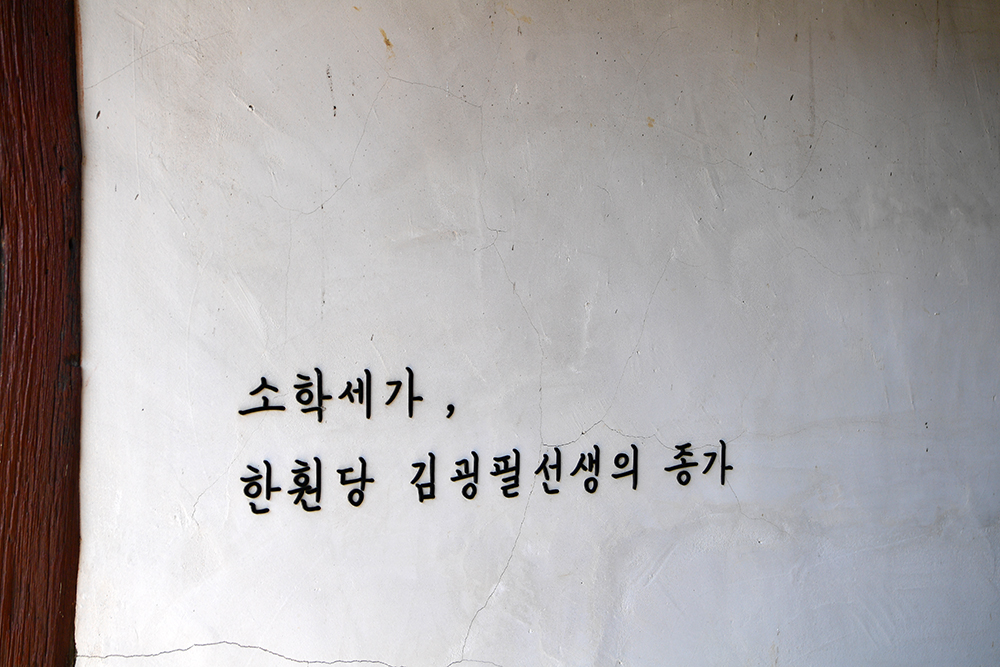 소학세가,
한훤당 김굉필선생의 종가